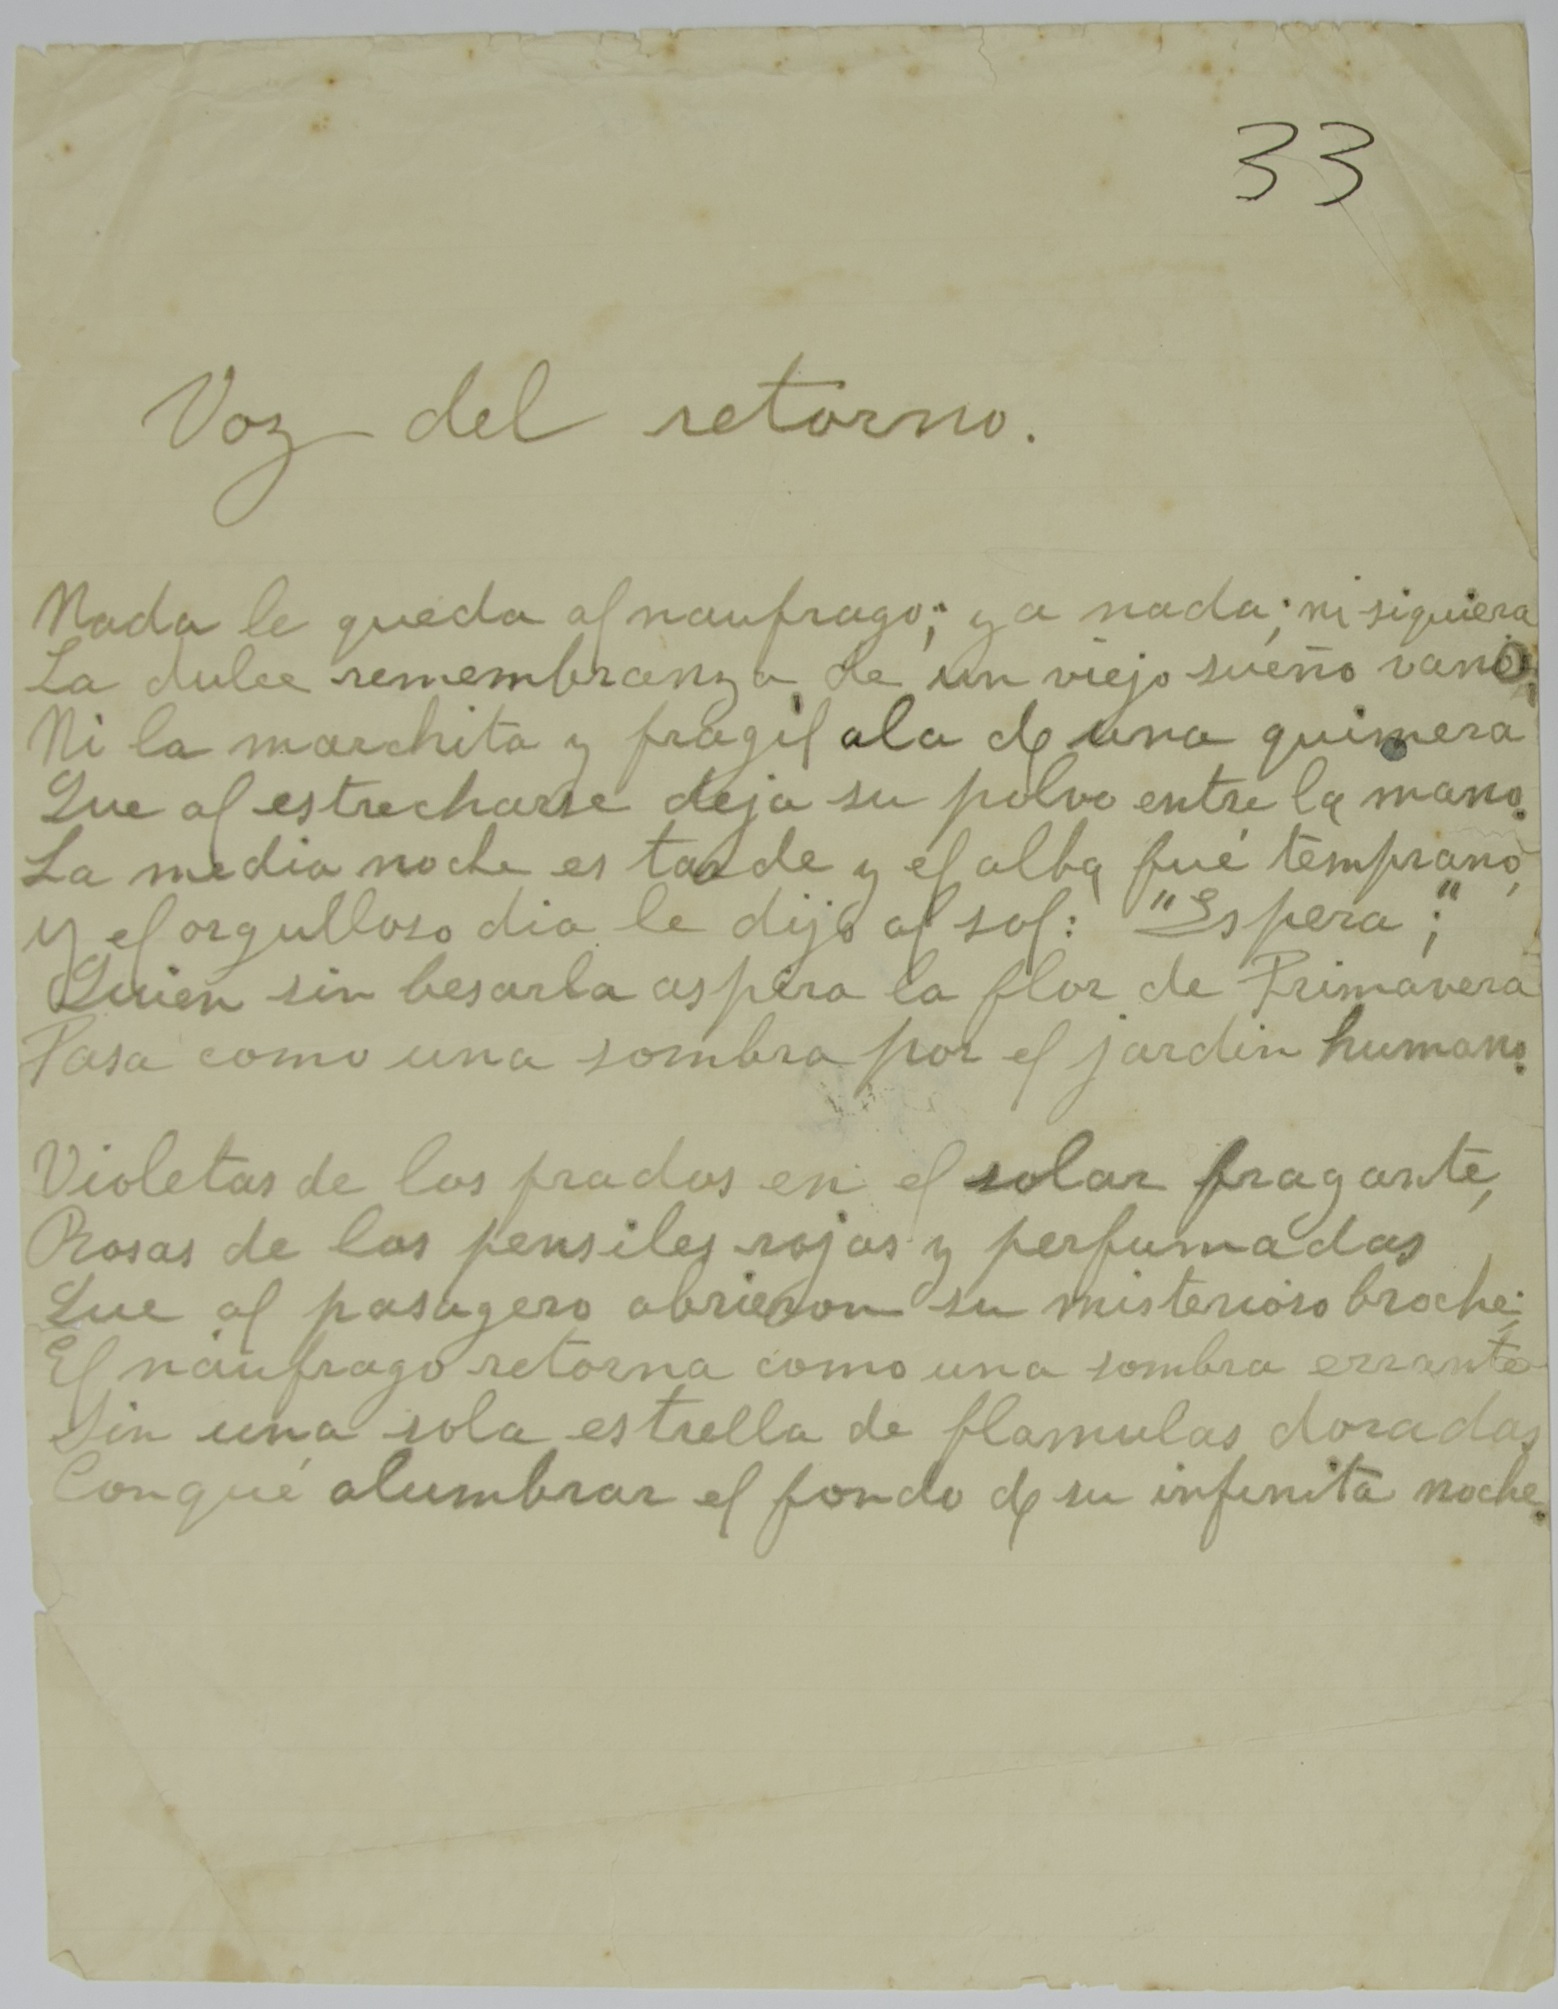 33
Voz del retorno.
Nada le queda al naufrago; ya nada; ni siquiera
La dulce remembranza de un viejo sueño vano;
Ni la marchita y fragil ala de una quimera
Que al estrecharse deja su polvo entre la mano.
La media noche es tarde y el alba fué temprano,
y el orgulloso dia le dijo al sol: "Espera;"
Quien sin besarla aspira la flor de Primavera
Pasa como una sombra por el jardin humano.
Violetas de los prados en el solar fragante,
Rosas de los pensiles rojas y perfumadas
Que al pasagero abrieron su misterioso broche;
El náufrago retorna como una sombra errante
Sin una sola estrella de flamulas doradas
Con qué alumbrar el fondo de su infinita noche.